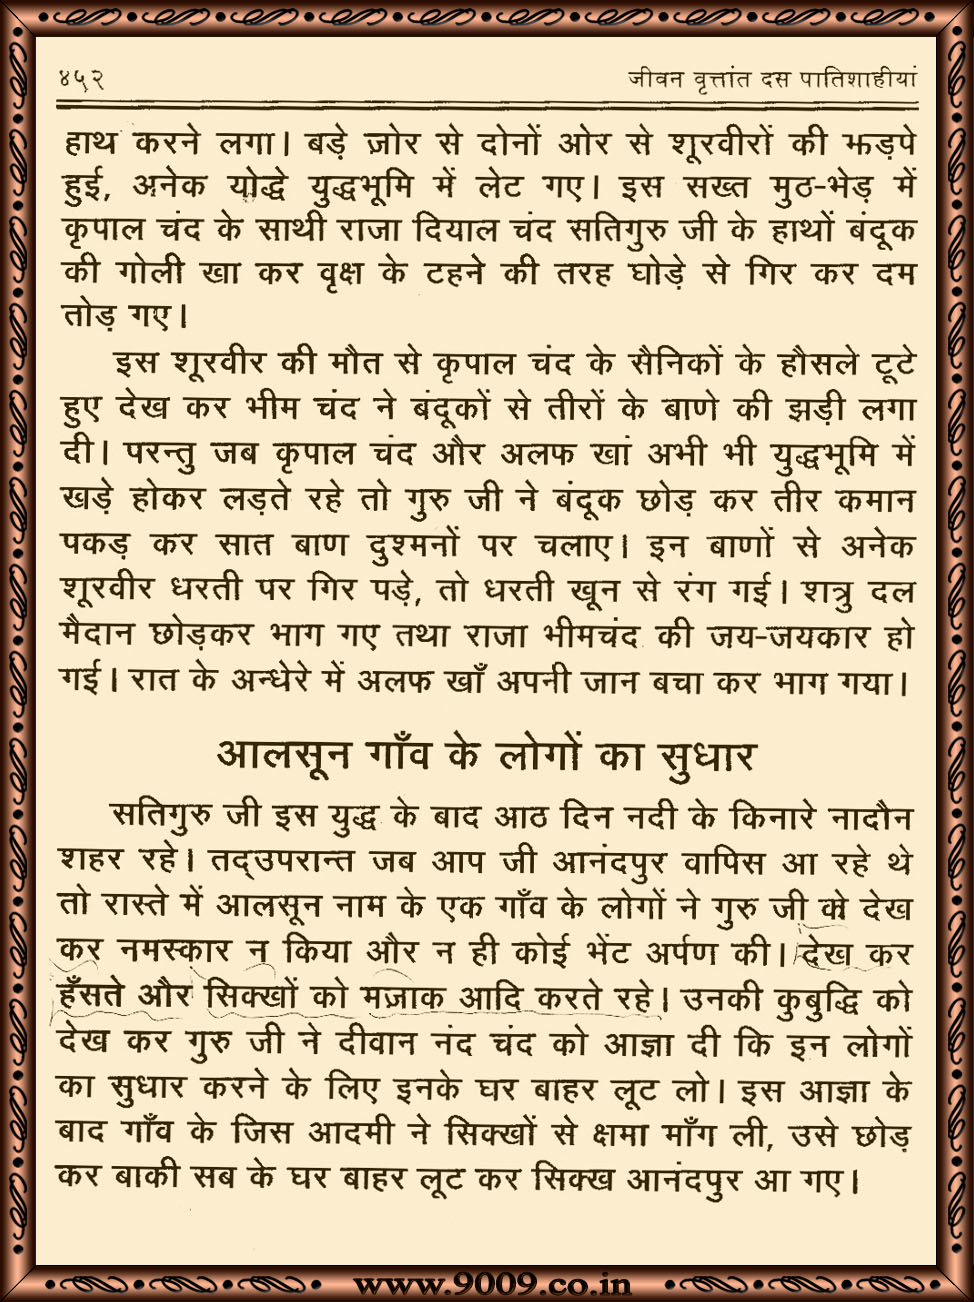 ४५२ जीवन वृत्तांत दस पातिशाहीयां
हाथ करने लगा। बड़े ज़ोर से दोनों ओर से शूरवीरों की झड़पे
हुई, अनेक योद्धे युद्धभूमि में लेट गए। इस सख्त मुठ-भेड़ में
कृपाल चंद के साथी राजा दियाल चंद सतिगुरु जी के हाथों बंदूक
की गोली खा कर वृक्ष के टहने की तरह घोड़े से गिर कर दम
तोड़ गए।
इस शूरवीर की मौत से कृपाल चंद के सैनिकों के हौसले टूटे
हुए देख कर भीम चंद ने बंदूकों से तीरों के बाणे की झड़ी लगा
दी। परन्तु जब कृपाल चंद और अलफ खां अभी भी युद्धभूमि में
खड़े होकर लड़ते रहे तो गुरु जी ने बंदूक छोड़ कर तीर कमान
पकड़ कर सात बाण दुश्मनों पर चलाए। इन बाणों से अनेक
शूरवीर धरती पर गिर पड़े, तो धरती खून से रंग गई। शत्रु दल
मैदान छोड़कर भाग गए तथा राजा भीमचंद की जय-जयकार हो
गई। रात के अन्धेरे में अलफ खाँ अपनी जान बचा कर भाग गया।
आलसून गाँव के लोगों का सुधार
सतिगुरु जी इस युद्ध के बाद आठ दिन नदी के किनारे नादौन
शहर रहे। तद्उपरान्त जब आप जी आनंदपुर वापिस आ रहे थे
तो रास्ते में आलसून नाम के एक गाँव के लोगों ने गुरु जी को देख
कर नमस्कार न किया और न ही कोई भेंट अर्पण की। देख कर
हँसते और सिक्खों को मज़ाक आदि करते रहे। उनकी कुबुद्धि को
देख कर गुरु जी ने दीवान नंद चंद को आज्ञा दी कि इन लोगों
का सुधार करने के लिए इनके घर बाहर लूट लो। इस आज्ञा के
बाद गाँव के जिस आदमी ने सिक्खों से क्षमा माँग ली, उसे छोड़
कर बाकी सब के घर बाहर लूट कर सिक्ख आनंदपुर आ गए।
www.9009.co.in